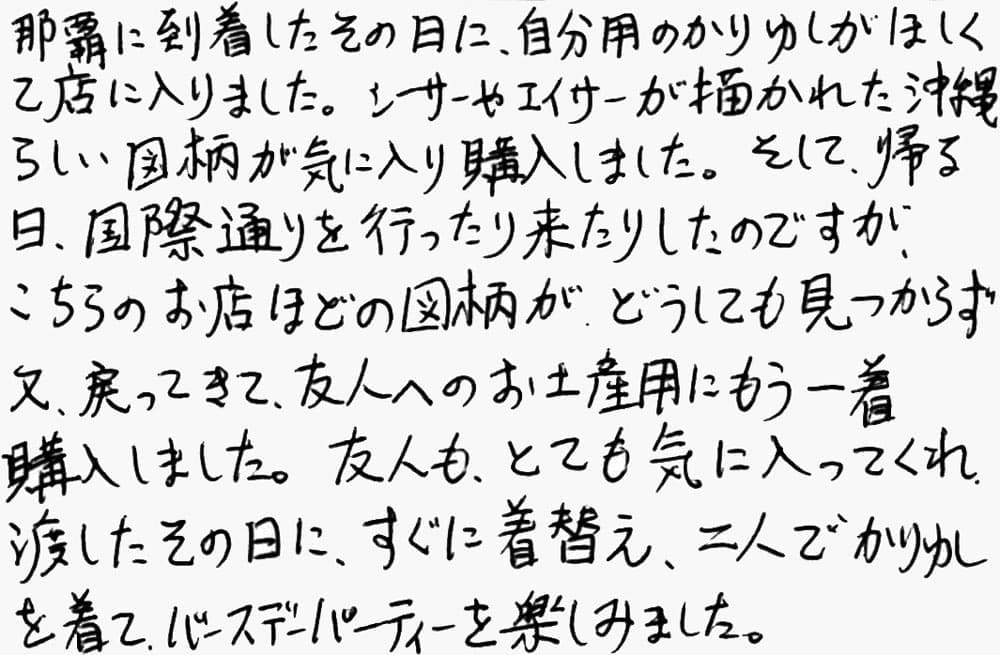 那覇に到着したその日に、自分用のかりゆしがほしく
て店に入りました。シーサーやエイサーが描かれた沖縄
らしい図柄が気に入り購入しました。そして、帰る
日、国際通りを行ったり来たりしたのですが、
こちらのお店ほどの図柄が、どうしても見つからず
又、戻ってきて、友人へのお土産用にもう一着
購入しました。友人も、とても気に入ってくれ、
渡したその日に、すぐに着替え、二人でかりゆし
を着て、バースデーパーティーを楽しみました。